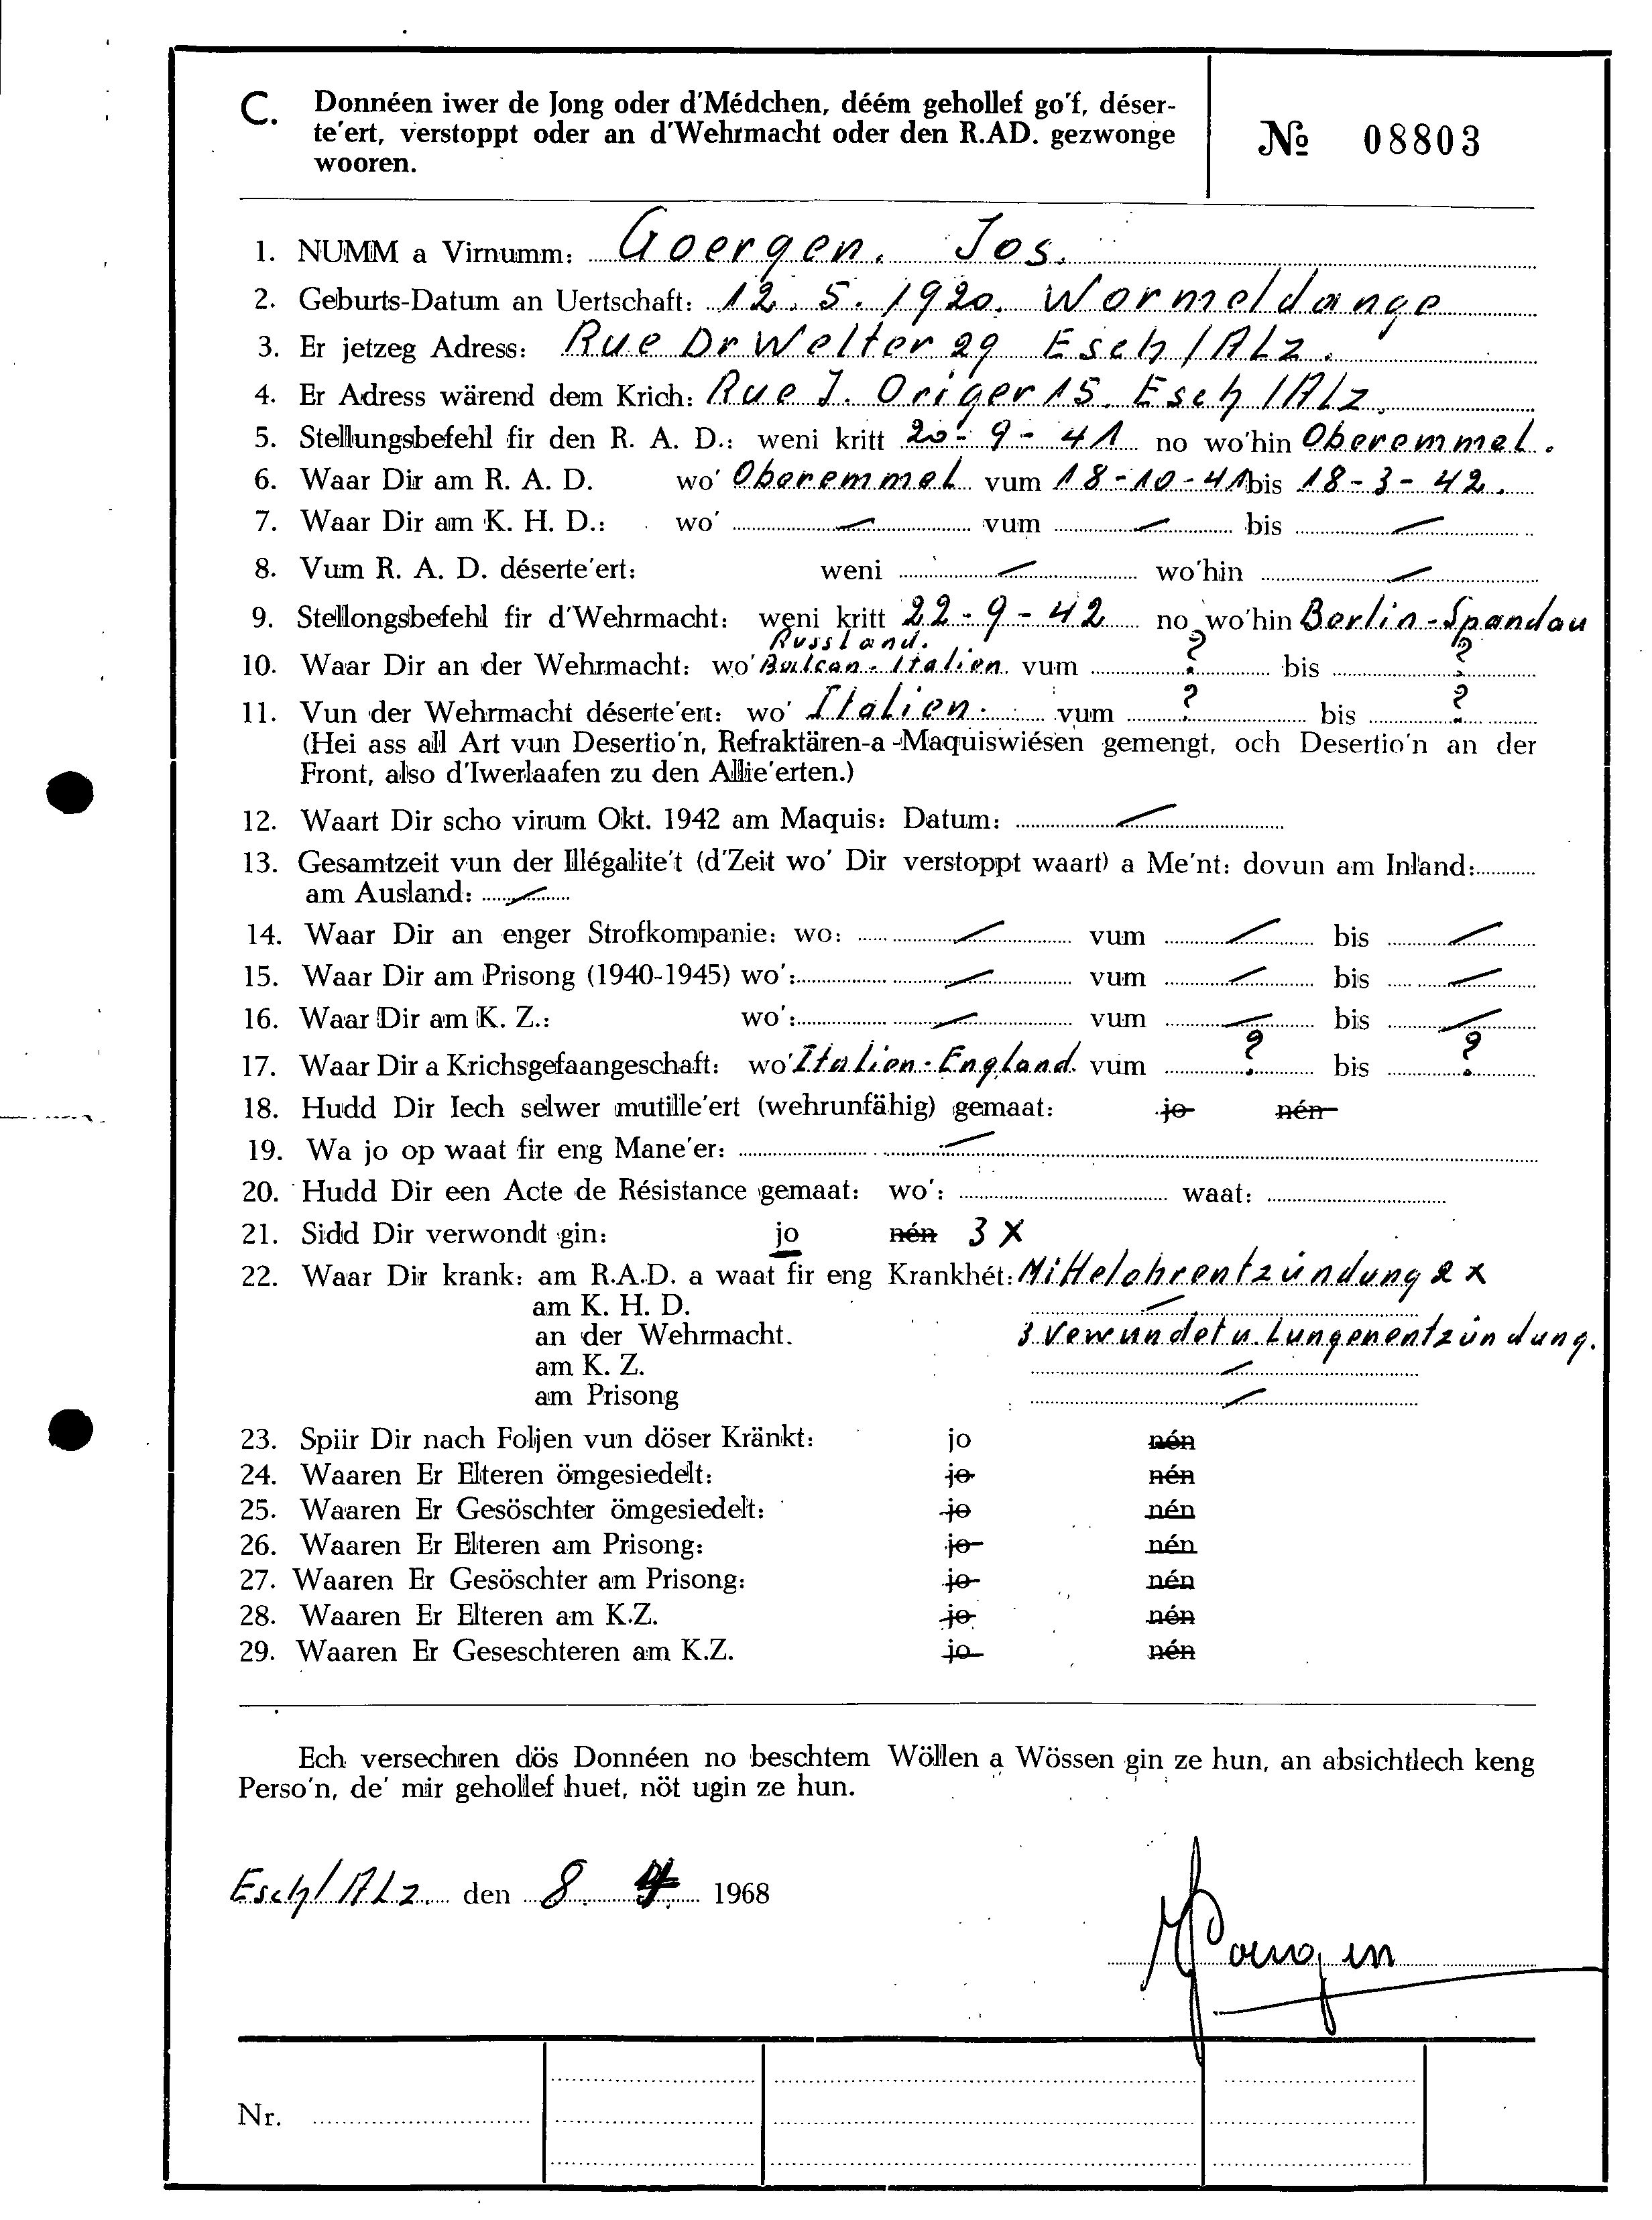 C. Donnéen iwer de Jong oder d'Médchen, déém gehollef go'f, déser-
te'ert, verstoppt oder an d'Wehrmacht oder den R.AD. gezwonge
wooren.
№ 08803
1. NUMM a Virnumm: Goergen. Jos.
2. Geburts-Datum an Uertschaft: 12. 5. 1920. Wormeldange
3. Er jetzeg Adress: Rue Dr Welter 29 Esch/Alz.
4. Er Adress wärend dem Krich: Rue J. Origer 15. Esch/Alz.
5. Stellungsbefehl fir den R. A. D.: weni kritt 20 - 9 - 41 no wo'hin Oberemmel.
6. Waar Dir am R. A. D. wo' Oberemmel vum 18-10-41 bis 18-3-42.
7. Waar Dir am K. H. D.: wo' — vum — bis —
8. Vum R. A. D. déserte'ert: weni — wo'hin —
9. Stellongsbefehl fir d'Wehrmacht: weni kritt 22-9-42 no wo'hin Berlin-Spandau
Russland.
10. Waar Dir an der Wehrmacht: wo' Balcan-Italien vum ? bis ?
11. Vun der Wehrmacht déserte'ert: wo' Italien. vum ? bis ?
(Hei ass all Art vun Desertio'n, Refraktären-a-Maquiswiésen gemengt, och Desertio'n an der
Front, also d'Iwerlaafen zu den Allie'erten.)
12. Waart Dir scho virum Okt. 1942 am Maquis: Datum: —
13. Gesamtzeit vun der Illégalite't (d'Zeit wo' Dir verstoppt waart) a Me'nt: dovun am Inland:
am Ausland: —
14. Waar Dir an enger Strofkompanie: wo: — vum — bis —
15. Waar Dir am Prisong (1940-1945) wo': — vum — bis —
16. Waar Dir am K. Z.: wo': — vum — bis —
17. Waar Dir a Krichsgefaangeschaft: wo' Italien-England. vum ? bis ?
18. Hudd Dir Iech selwer mutille'ert (wehrunfähig) gemaat: jo nén
19. Wa jo op waat fir eng Mane'er: —
20. Hudd Dir een Acte de Résistance gemaat: wo': waat:
21. Sidd Dir verwondt gin: jo nén 3 X
22. Waar Dir krank: am R.A.D. a waat fir eng Krankhét: Mittelohrentzündung 2 x
am K. H. D. —
an der Wehrmacht. 3 Verwundet u. Lungenentzündung.
am K. Z. —
am Prisong —
23. Spiir Dir nach Foljen vun döser Kränkt: jo nén
24. Waaren Er Elteren ömgesiedelt: jo nén
25. Waaren Er Gesöschter ömgesiedelt: jo nén
26. Waaren Er Elteren am Prisong: jo nén
27. Waaren Er Gesöschter am Prisong: jo nén
28. Waaren Er Elteren am K.Z. jo nén
29. Waaren Er Geseschteren am K.Z. jo nén
Ech versechren dös Donnéen no beschtem Wöllen a Wössen gin ze hun, an absichtlech keng
Perso'n, de' mir gehollef huet, nöt ugin ze hun.
Esch/Alz. den 8. 4. 1968
Nr.